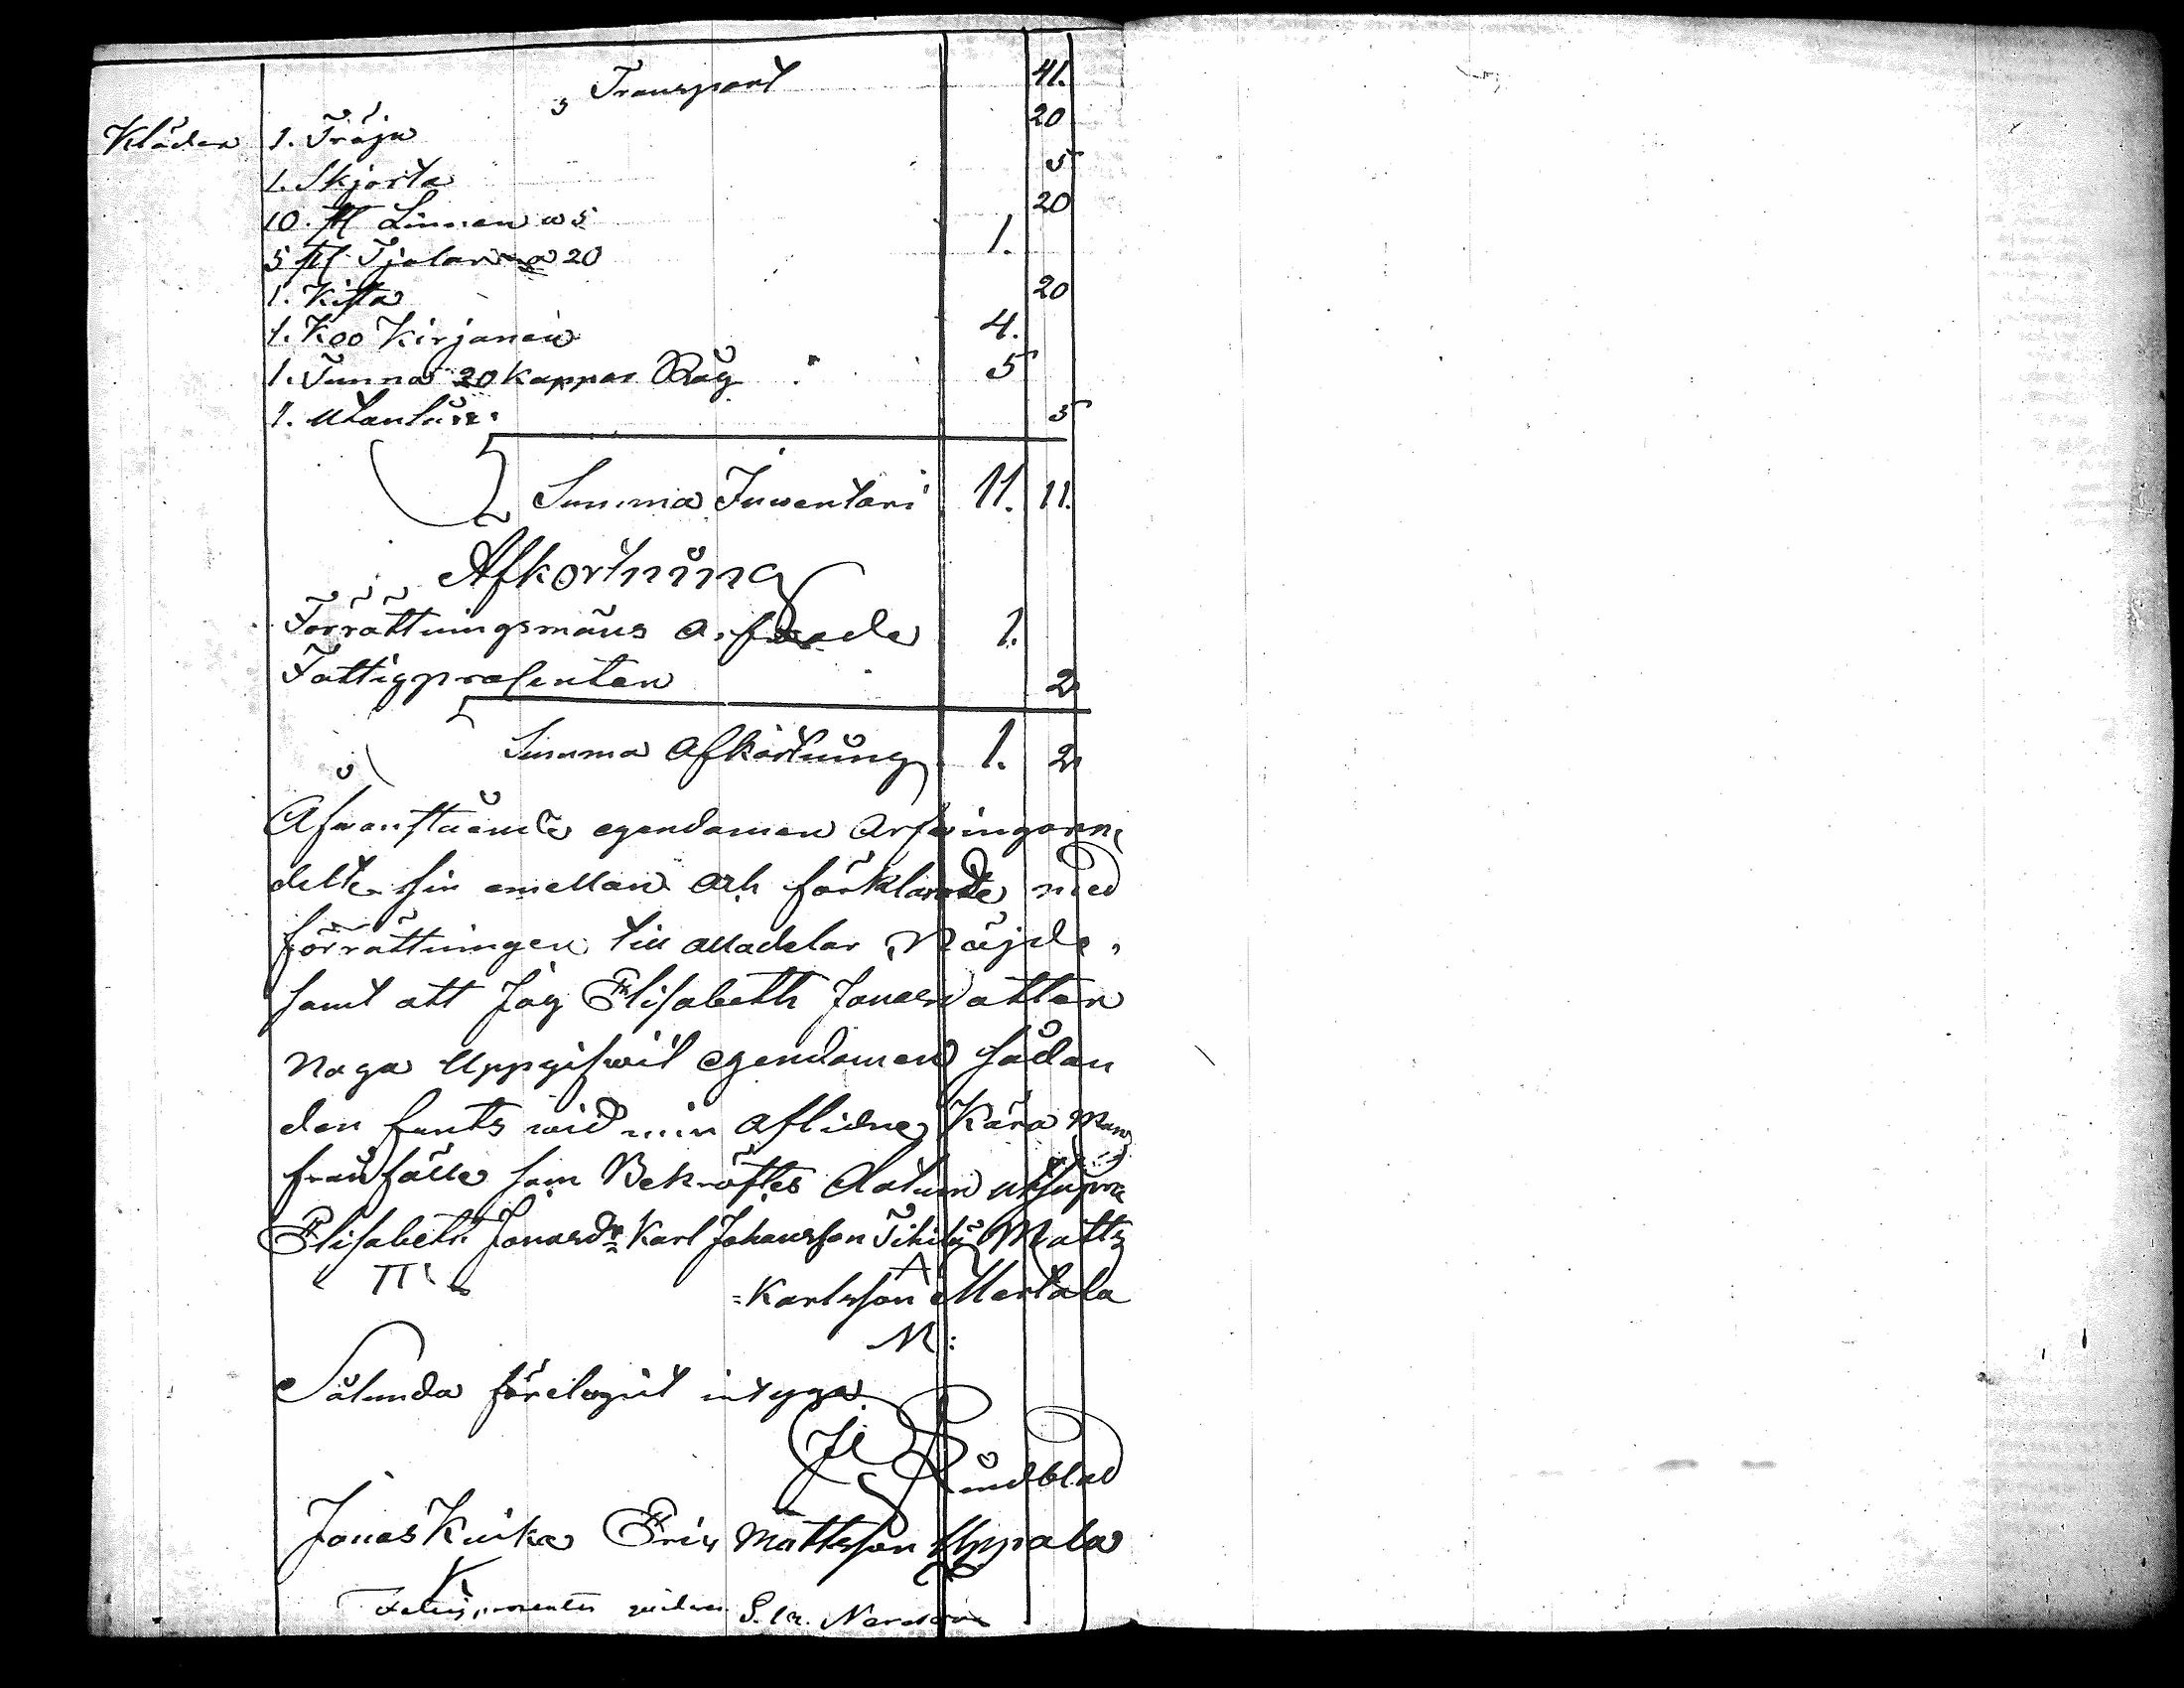 Transport 41.
Kläder 1. Tröja 20
1. Skjorta 5
10. ℔ Linnen a 5 20
5 ℔ Tjälar a 20 1.
1. Kista 20
1. Koo Kirjanen 4.
1. Tunna 20 kappar Råg 5
1. 5
Summa Inwentari 11. 11.
Afkortning
Förrättningsmäns Arfwode 1.
Fattigprosenten 2
Summa Afkortning 1. 2
Afwanstående egendomen Arfwingarne
delte sin emellan och förklarade med
förrättningen till alla delar Nöjde,
samt att Jag Elisabeth Jonasdotter
Noga Uppgifwit egendomen sådan
den fants wid min aflidne Kära Mans
frånfälle som Bekräftes Datum utsupra
Elisabeth Jonasdr Karl Johansson Matts
Karlsson Mertala
M:
Sålunda förelupit intyga
Lindblad
Jonas Kuika Erik Mattsson Uppala